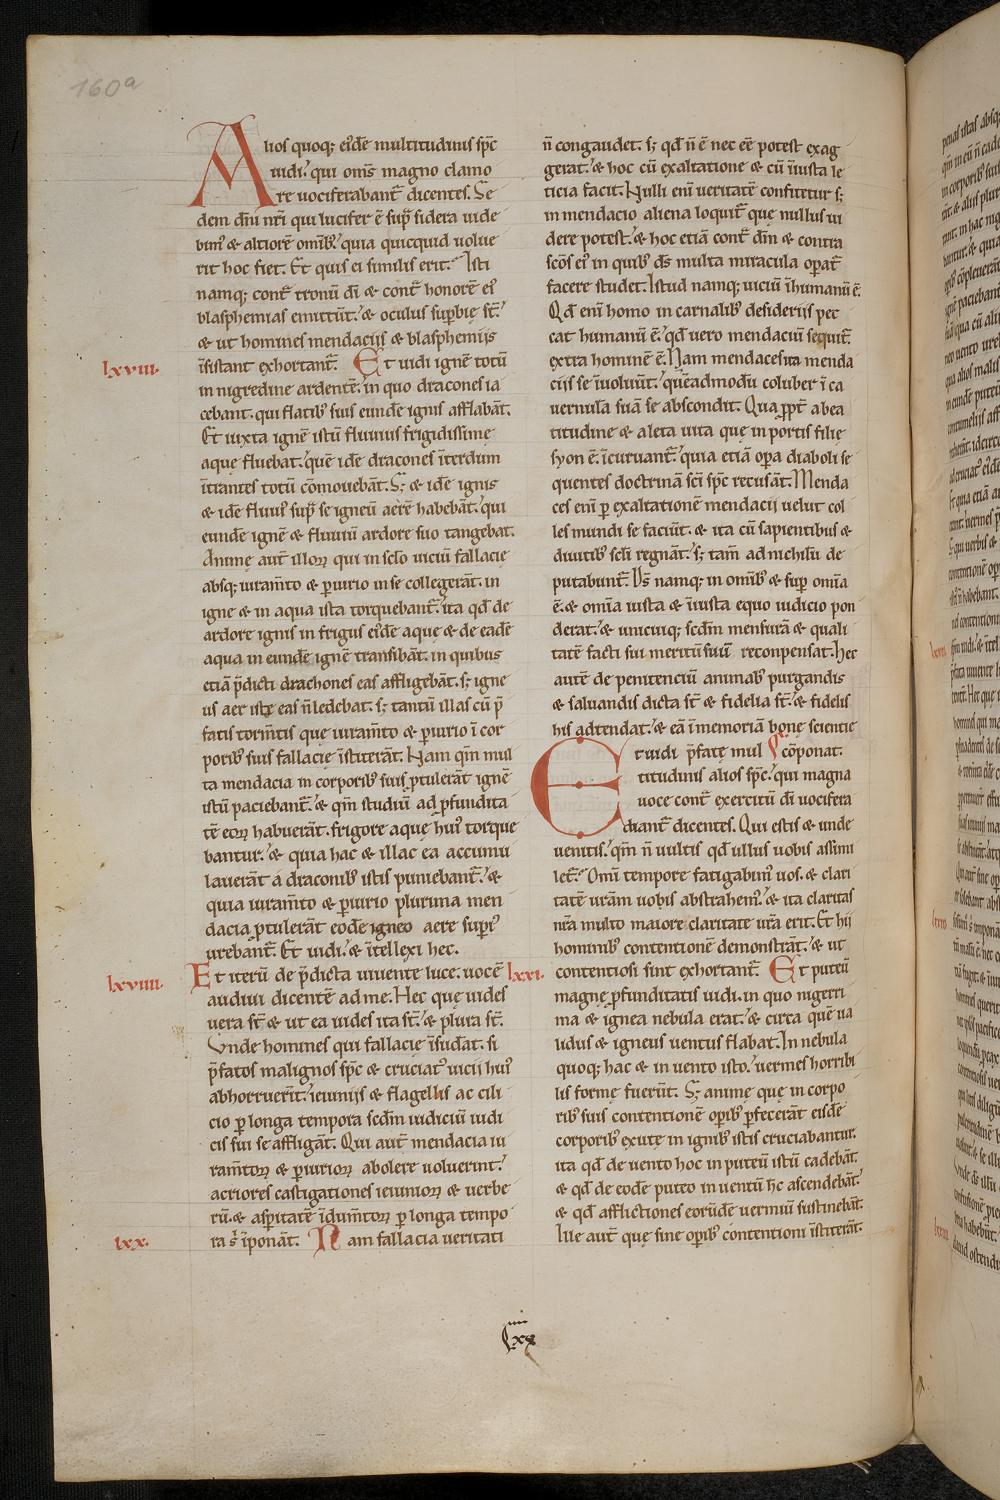 160a
Alios quoq; ei᷒dē multitudinis sp̄c
uidi. qui om̄s magno clamo
re uociferabant᷑ dicentes. Se
dem dn̄i nr̄i qui lucifer ē sup̱ sidera uide
bim᷒ & altiorē omib᷒. quia quicquid uolue
rit hoc fiet. Et quis ei similis erit. Isti
namq; cont᷑ tronū di & cont᷑ honorē ei᷒
blasphemias emittūt. & oculus sup̱bie st̄.
& ut homines mendaciis & blasphemiis
lxviii. īsistant exhortant᷑. Et uidi ignē totū
in nigredine ardentē. in quo dracones ia
cebant. qui flatib᷒ suis eundē ignis afflabāt.
Et iuxta ignē istū fluuius frigidissime
aque fluebat. quē idē dracones īterdum
ītrantes totū cōmouebāt. S; & idē ignis
& idē fluui᷒ sup̱ se igneū aerē habebāt. qui
eundē ignē & fluuiū ardore suo tangebat.
Anime aut̄ illoꝝ qui in sc̄lo uiciū fallacie
absq; iuram̄to & ꝑiurio in se collegerāt. in
igne & in aqua ista torquebant᷑. ita qd̄ de
ardore ignis in frigus ei᷒dē aque & de eadē
aqua in eundē ignē transibāt. in quibus
etiā p̄dicti drachones eas affligebāt. s; igne
us aer iste eas n̄ ledebat. s; tantū illas cū p̄
fatis torm̄tis que iuram̄to & ꝑiurio ī cor
porib᷒ suis fallacie īstiterāt. Nam qm̄ mul
ta mendacia in corporib᷒ suis ꝓtulerāt ignē
istū paciebant᷑. & qm̄ studiū ad ꝓfundita
tē eoꝝ habuerāt. frigore aque hui᷒ torque
bantur. & quia hac & illac ea accumu
lauerāt a draconib᷒ istis puniebant᷑. &
quia iuram̄to & ꝑiurio plurima men
dacia ꝓtulerāt eodē igneo aere sup̱i᷒
urebant᷑. Et uidi. & ītellexi hec.
lxviiii. Et iterū de p̄dicta uiuente luce. uocē
audiui dicentē ad me. Hec que uides
uera st̄ & ut ea uides ita st̄. & plura st̄.
Unde homines qui fallacie īsudāt. si
p̄fatos malignos sp̄c & cruciat᷒ uicii hui᷒
abhorruerīt. ieiuniis & flagellis ac cili
cio ꝑ longa tempora scd̄m iudiciū iudi
cis sui se affligāt. Qui aut̄ mendacia iu
ram̄toꝝ & ꝑiurioꝝ abolere uoluerint.
acriores castigationes ieiunioꝝ & uerbe
rū. & asp̱itatē īdum̄toꝝ ꝑ longa tempo
lxx. ra s᷒ īponāt. Nam fallacia ueritati
n̄ congaudet. s; qd̄ n̄ ē nec eē potest exag
gerat. & hoc cū exaltatione & cū īiusta le
ticia facit. Nulli eni ueritatē confitetur s;
in mendacio aliena loquit᷑ que nullus ui
dere potest. & hoc etiā cont᷑ dm̄ & contra
scōs ei᷒ in quib᷒ ds̄ multa miracula op̱at᷑
facere studet. Istud namq; uiciū īhumanū ē.
Qd̄ eni homo in carnalib᷒ desideriis pec
cat humanū ē. qd̄ uero mendaciū sequit᷑
extra hominē ē. Nam mendaces ita menda
ciis se īuoluūt. quēadmodū coluber ī ca
uernula suā se abscondit. Qua ꝓpt̄ a bea
titudine & aleta uita que in portis filie
syon ē. īcuruant᷑. quia etiā op̱a diaboli se
quentes doctrinā sci sp̄c recusāt. Menda
ces eni ꝑ exaltationē mendacii uelut col
les mundi se faciūt. & ita cū sapientibus &
diuitib᷒ scl̄i regnāt. s; tam̄ ad nichilū de
putabunt᷑. Ds̄ namq; in omib᷒ & sup̱ omīa
ē. & omīa iusta & īiusta equo iudicio pon
derat. & unicuiq; scd̄m mensurā & quali
tatē facti sui meritū suū reconpensat. Hec
autē de penitenciū animab᷒ purgandis
& saluandis dicta st̄ & fidelia st̄. & fidelis
his adtendat. & ea ī memoriā bone scientie
cōponat.
Et uidi p̄fate mul
titudinis alios sp̄c. qui magna
uoce cont᷑ exercitū di uocifera
diant᷑ dicentes. Qui estis & unde
uenitis. qm̄ n̄ uultis qd̄ ullus uobis assimi
let᷑. Omi tempore fatigabim᷒ uos. & clari
tatē uram̄ uobis abstrahem᷒. & ita claritas
nr̄a multo maiore claritate ur̄a erit. Et hii
hominib᷒ contentionē demonstrāt. & ut
lxxi. contentiosi sint exhortant᷑. Et puteū
magne ꝓfunditatis uidi. in quo nigerri
ma & ignea nebula erat. & circa quē ua
lidus & igneus uentus flabat. In nebula
quoq; hac & in uento isto. uermes horribi
lis forme fuerūt. S; anime que in corpo
rib᷒ suis contentionē op̱ib᷒ ꝑfecerāt eisdē
corporib᷒ exute in ignib᷒ istis cruciabantur.
ita qd̄ de uento hoc in puteū istū cadebāt.
& qd̄ de eodē puteo in uentū hc ascendebāt.
& qd̄ afflictiones eorūdē uermiū sustinebāt.
Ille aut̄ que sine op̱ib᷒ contentioni īstiterāt.